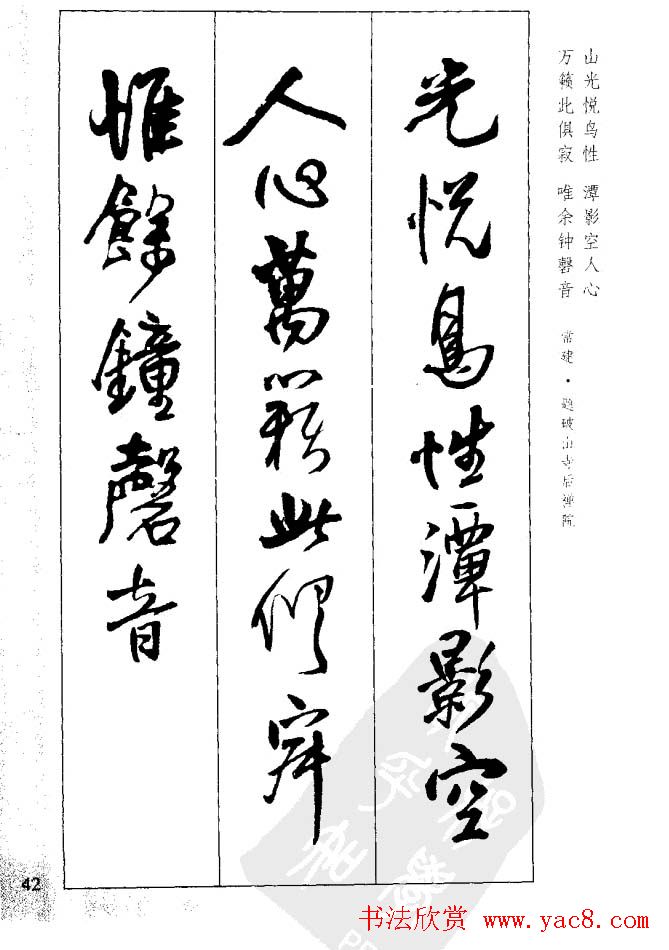 山光悦鸟性 潭影空人心
万籁此俱寂 唯余钟磬音
常建·题破山寺后禅院
光悦鳥性潭影空
人心萬籟此俱寂
惟餘鐘磬音
42
书法欣赏 www.yac8.com